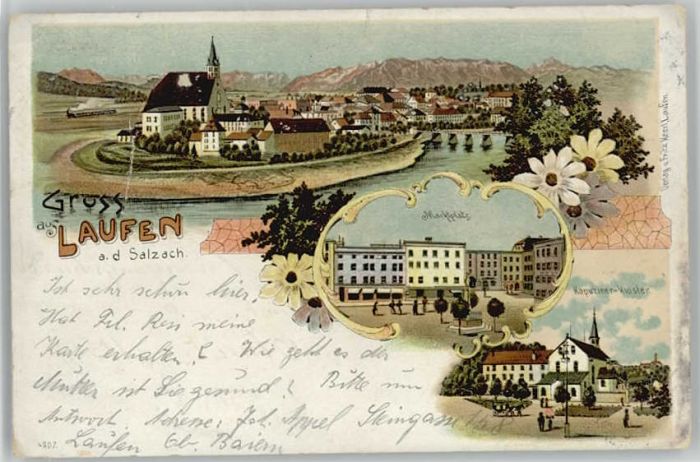 Gruss
aus LAUFEN
a. d Salzach.
Marktplatz
Kapuziner-Kloster
Verlag v. Fritz Laufen
Ist sehr schön hier.
Hat Frl. Resi meine
Karte erhalten? Wie geht es der
Mutter ist Sie gesund? Bitte um
Antwort. Adresse: Joh. Appel Steingasse
Laufen Ob. Bayern
4207.